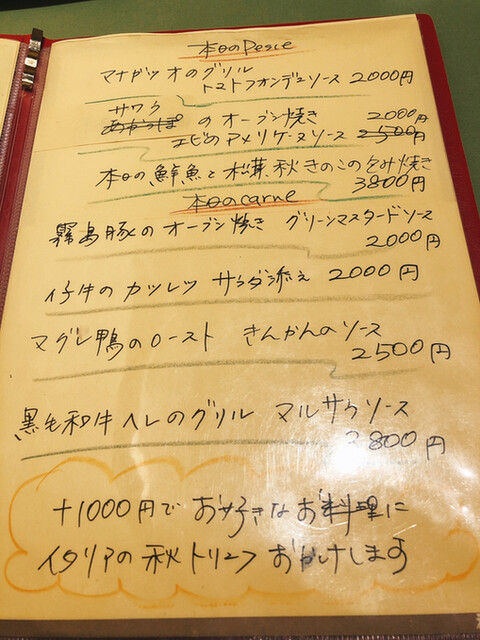 本日のPesce
マナガツオのグリル
トマトフォンデュソース 2000円
サワラ
あかラっぽ のオーブン焼き 2000円
エビのアメリケーヌソース 2500
本日の鮮魚と松茸、秋きのこの包み焼き
3800円
本日のcarne
霧島豚のオーブン焼き グリーンマスタードソース
2000円
仔牛のカツレツ サラダ添え 2000円
マグレ鴨のロースト きんかんのソース
2500円
黒毛和牛ヘレのグリル マルサラソース
2800円
+1000円で お好きなお料理に
イタリアの秋トリュフ おかけします